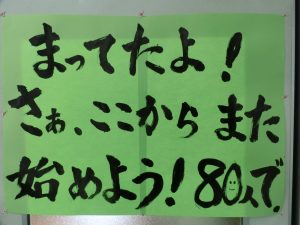 まってたよ!
さぁ、ここから また
始めよう!80人で.